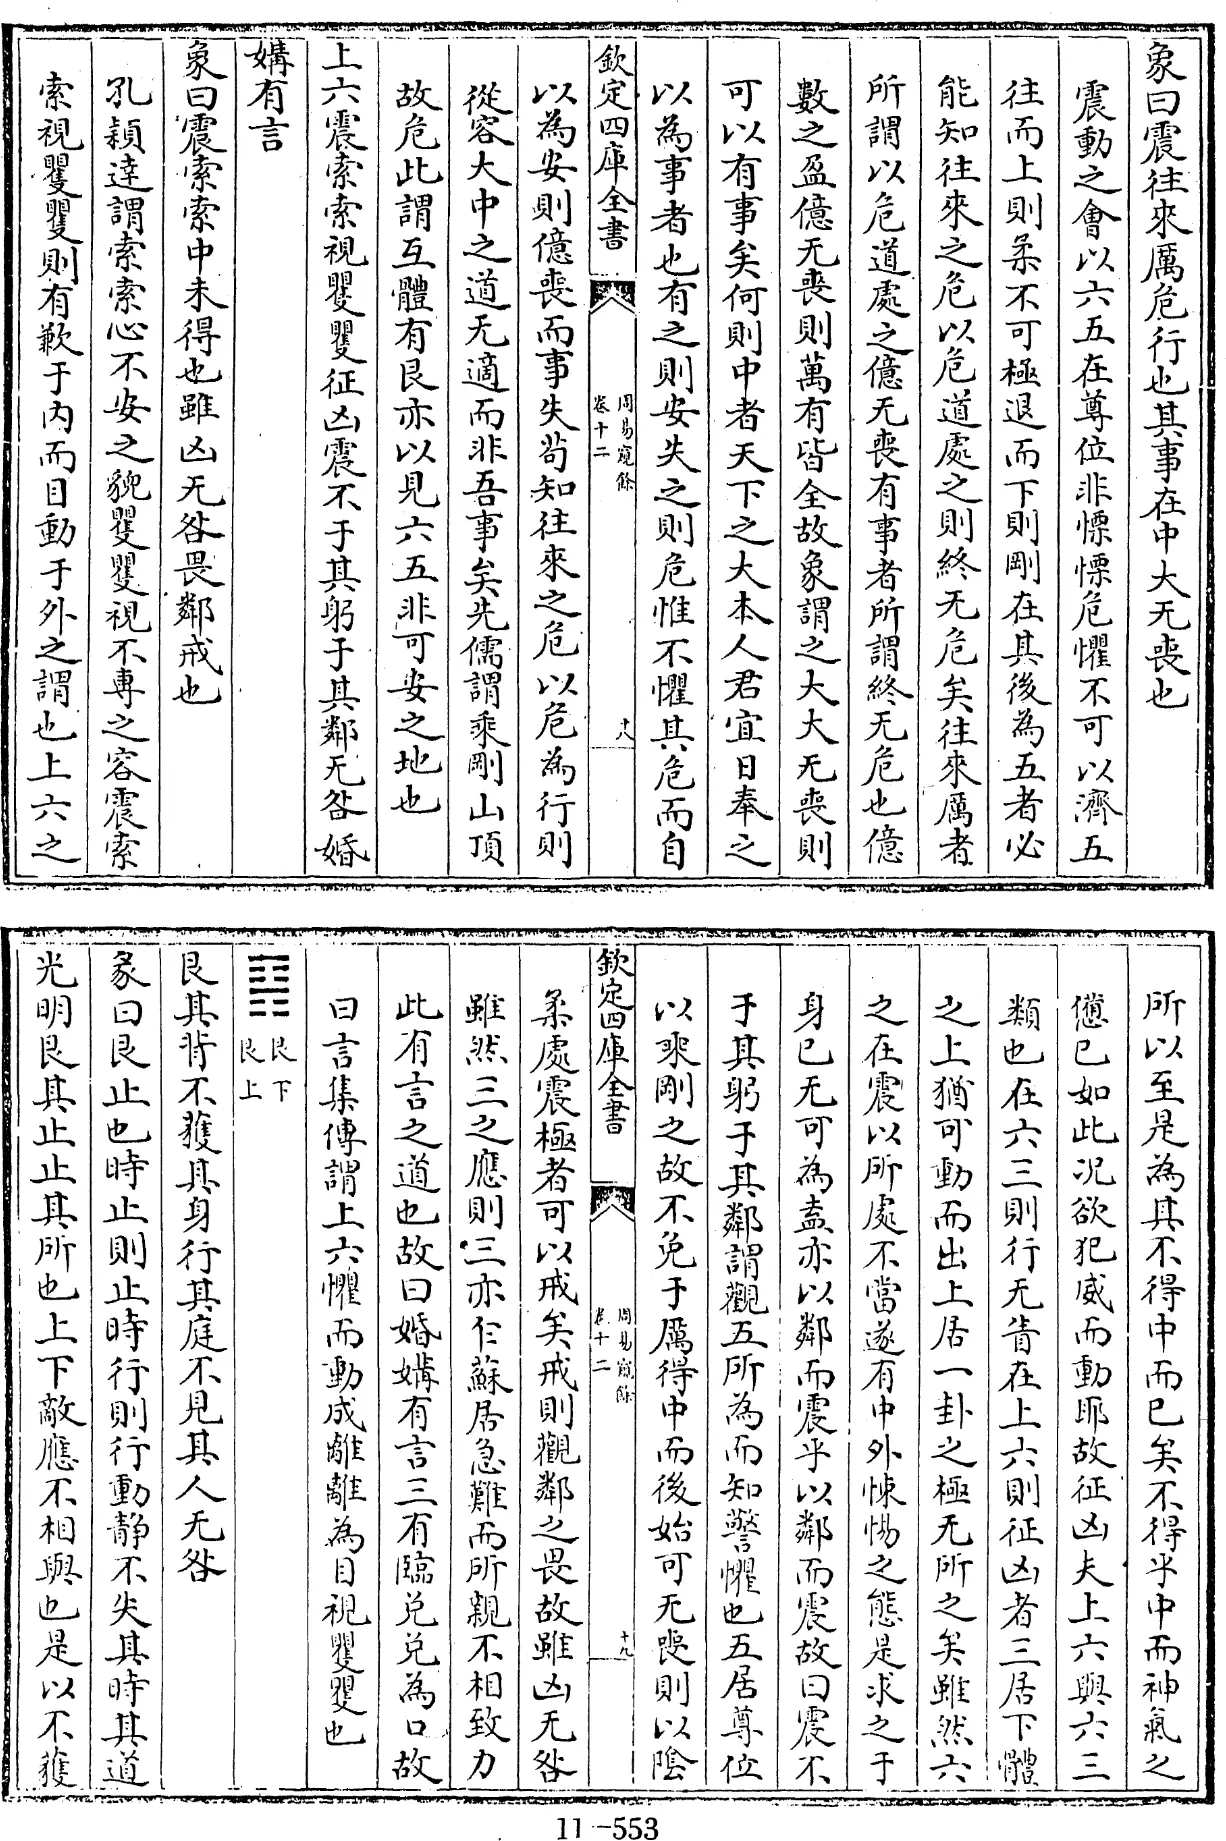 象曰震往來厲危行也其事在中大无喪也
震動之會以六五在尊位非慄慄危懼不可以濟五
往而上則柔不可極退而下則剛在其後為五者必
能知往來之危以危道處之則終无危矣往來厲者
所謂以危道處之億无喪有事者所謂終无危也億
數之盈億无喪則萬有皆全故象謂之大大无喪則
可以有事矣何則中者天下之大本人君宜日奉之
以為事者也有之則安失之則危惟不懼其危而自
欽定四庫全書
周易窺餘
卷十二
十八
以為安則億喪而事失茍知往來之危以危為行則
從容大中之道无適而非吾事矣先儒謂乘剛山頂
故危此謂互體有艮亦以見六五非可安之地也
上六震索索視矍矍征凶震不于其躬于其鄰无咎婚
媾有言
象曰震索索中未得也雖凶无咎畏鄰戒也
孔穎達謂索索心不安之貌矍矍視不專之容震索
索視矍矍則有歉于內而目動于外之謂也上六之
所以至是為其不得中而已矣不得乎中而神氣之
憊已如此况欲犯威而動耶故征凶夫上六與六三
類也在六三則行无眚在上六則征凶者三居下體
之上猶可動而出上居一卦之極无所之矣雖然六
之在震以所處不當遂有中外悚惕之態是求之于
身已无可為盍亦以鄰而震乎以鄰而震故曰震不
于其躬于其鄰謂觀五所為而知警懼也五居尊位
以乘剛之故不免于厲得中而後始可无喪則以陰
欽定四庫全書
周易窺餘
卷十二
十九
柔處震極者可以戒矣戒則觀鄰之畏故雖凶无咎
雖然三之應則三亦乍蘇居急難而所親不相致力
此有言之道也故曰婚媾有言三有臨兑兑為口故
曰言集傳謂上六懼而動成離離為目視矍矍也
艮下
艮上
艮其背不獲其身行其庭不見其人无咎
彖曰艮止也時止則止時行則行動靜不失其時其道
光明艮其止止其所也上下敵應不相與也是以不獲
11-553